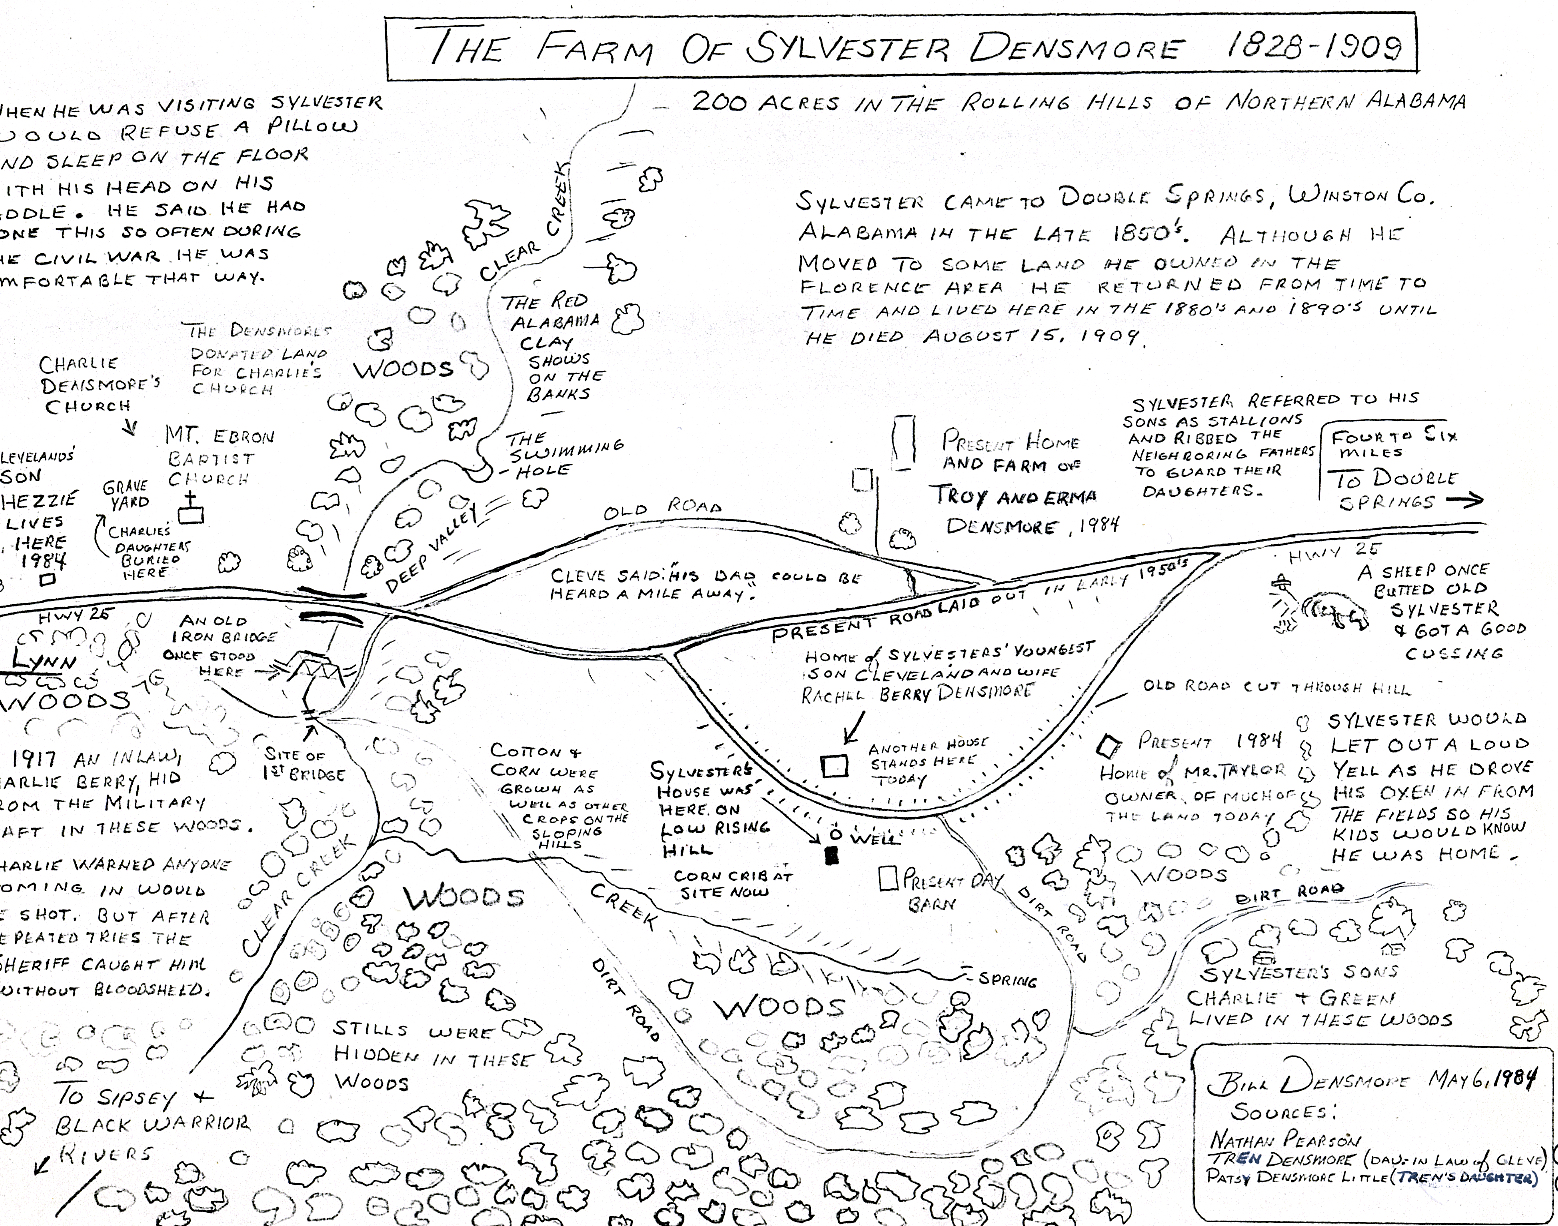 THE FARM OF SYLVESTER DENSMORE 1828-1909
200 ACRES IN THE ROLLING HILLS OF NORTHERN ALABAMA
WHEN HE WAS VISITING SYLVESTER
WOULD REFUSE A PILLOW
AND SLEEP ON THE FLOOR
WITH HIS HEAD ON HIS
SADDLE. HE SAID HE HAD
DONE THIS SO OFTEN DURING
THE CIVIL WAR HE WAS
COMFORTABLE THAT WAY.
SYLVESTER CAME TO DOUBLE SPRINGS, WINSTON CO.
ALABAMA IN THE LATE 1850's. ALTHOUGH HE
MOVED TO SOME LAND HE OWNED IN THE
FLORENCE AREA HE RETURNED FROM TIME TO
TIME AND LIVED HERE IN THE 1880's AND 1890's UNTIL
HE DIED AUGUST 15, 1909.
CLEAR CREEK
THE RED
ALABAMA
CLAY
SHOWS
ON THE
BANKS
THE DENSMORES
DONATED LAND
FOR CHARLIE'S
CHURCH
CHARLIE
DENSMORE'S
CHURCH
WOODS
MT. EBRON
BAPTIST
CHURCH
CLEVELANDS'
SON
HEZZIE
LIVES
HERE
1984
GRAVE
YARD
CHARLIE'S
DAUGHTERS
BURIED
HERE
THE
SWIMMING
HOLE
DEEP VALLEY
OLD ROAD
PRESENT HOME
AND FARM OF
TROY AND ERMA
DENSMORE, 1984
SYLVESTER REFERRED TO HIS
SONS AS STALLIONS
AND RIBBED THE
NEIGHBORING FATHERS
TO GUARD THEIR
DAUGHTERS.
FOUR TO SIX
MILES
TO DOUBLE
SPRINGS
HWY 25
CLEVE SAID: "HIS DAD COULD BE
HEARD A MILE AWAY."
PRESENT ROAD LAID OUT IN EARLY 1950's
A SHEEP ONCE
BUTTED OLD
SYLVESTER
& GOT A GOOD
CUSSING
HWY 25
LYNN
WOODS
AN OLD
IRON BRIDGE
ONCE STOOD
HERE
SITE OF
1ST BRIDGE
HOME of SYLVESTERS' YOUNGEST
SON CLEVELAND AND WIFE
RACHLL BERRY DENSMORE
ANOTHER HOUSE
STANDS HERE
TODAY
OLD ROAD CUT THROUGH HILL
PRESENT 1984
HOME of MR. TAYLOR
OWNER OF MUCH OF
THE LAND TODAY
SYLVESTER WOULD
LET OUT A LOUD
YELL AS HE DROVE
HIS OXEN IN FROM
THE FIELDS SO HIS
KIDS WOULD KNOW
HE WAS HOME.
1917 AN INLAW,
CHARLIE BERRY, HID
FROM THE MILITARY
DRAFT IN THESE WOODS.
CHARLIE WARNED ANYONE
COMING IN WOULD
BE SHOT. BUT AFTER
REPEATED TRIES THE
SHERIFF CAUGHT HIM
WITHOUT BLOODSHELD.
COTTON &
CORN WERE
GROWN AS
WELL AS OTHER
CROPS ON THE
SLOPING
HILLS
SYLVESTER'S
HOUSE WAS
HERE ON
LOW RISING
HILL
WELL
CORN CRIB AT
SITE NOW
PRESENT DAY
BARN
CLEAR CREEK
WOODS
CREEK
DIRT ROAD
WOODS
SPRING
DIRT ROAD
WOODS
DIRT ROAD
SYLVESTER'S SONS
CHARLIE + GREEN
LIVED IN THESE WOODS
STILLS WERE
HIDDEN IN THESE
WOODS
TO SIPSEY +
BLACK WARRIOR
RIVERS
BILL DENSMORE MAY 6, 1984
SOURCES:
NATHAN PEARSON
TREN DENSMORE (DAU-IN LAW of CLEVE)
PATSY DENSMORE LITTLE (TREN'S DAUGHTER)